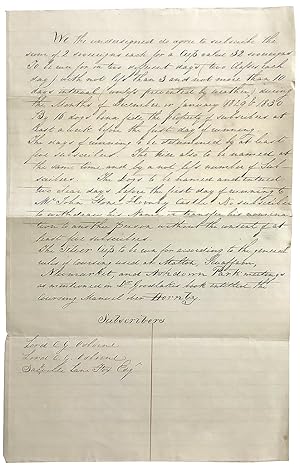 We the undersigned do agree to subscribe the
sum of 2 sovereigns each for a Cup value 32 sovereigns
To be run for in two different days, two Courses each
day, with not less than 3 and not more than 10
days interval (unless prevented by weather) during
the Months of December or January 1829 & 1830
By 16 dogs bona fide the property of subscribers at
least a week before the first day of running
The days of running to be determined by at least
five subscribers The tie also to be named at
the same time and by a not less number of sub-
scribers. The Dogs to be named and entered
two clear days before the first day of running to
Mr John Hornby Castle No subscriber
to withdraw his Name or transfer his nomina-
tion to another person without the consent of at
least five subscribers
The Cup to be run for according to the general
rules of coursing used at Malton Swaffham,
Newmarket, and Park meetings
as mentioned in Dr Goodlakes book entitled the
Coursing Manual Hornby
Subscribers
Lord C G Osborne
Lord C G Osborne
Sackville Lane Fox Esqr